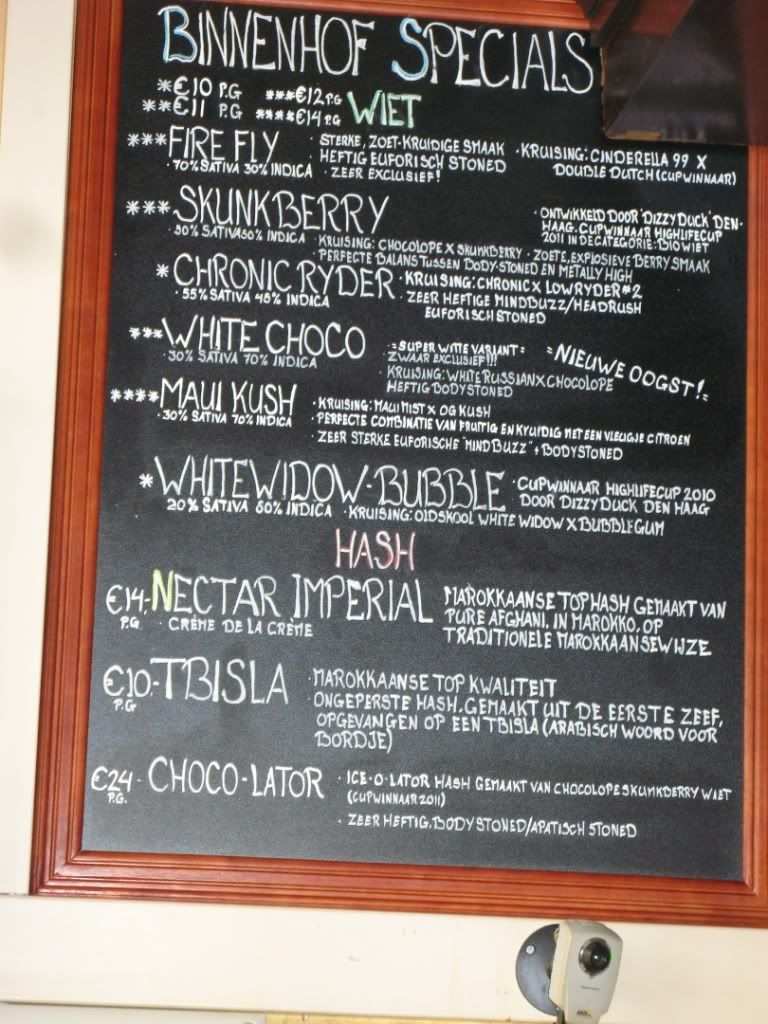 BINNENHOF SPECIALS
*€10 P.G ***€12 P.G
**€11 P.G ****€14 P.G WIET
***FIRE FLY · STERKE, ZOET-KRUIDIGE SMAAK · KRUISING: CINDERELLA 99 X
70% SATIVA 30% INDICA HEFTIG EUFORISCH STONED DOUBLE DUTCH (CUPWINNAAR)
· ZEER EXCLUSIEF!
***SKUNKBERRY · ONTWIKKELD DOOR 'DIZZY DUCK' DEN-
HAAG. CUPWINNAAR HIGHLIFECUP
50% SATIVA 50% INDICA 2011 IN DE CATEGORIE: BIO WIET
· KRUISING: CHOCOLOPE X SKUNKBERRY · ZOETE, EXPLOSIEVE BERRY SMAAK
PERFECTE BALANS TUSSEN BODY-STONED EN METALLY HIGH
*CHRONIC RYDER · KRUISING: CHRONIC X LOWRYDER #2
55% SATIVA 45% INDICA · ZEER HEFTIGE MINDBUZZ/HEADRUSH
EUFORISCH STONED
***WHITE CHOCO =SUPER WITTE VARIANT= =NIEUWE OOGST!=
30% SATIVA 70% INDICA ZWAAR EXCLUSIEF!!!
· KRUISING: WHITE RUSSIAN X CHOCOLOPE
HEFTIG BODYSTONED
****MAUI KUSH · KRUISING: MAUI MIST X OG KUSH
30% SATIVA 70% INDICA · PERFECTE COMBINATIE VAN FRUITIG EN KRUIDIG MET EEN VLEUGJE CITROEN
· ZEER STERKE EUFORISCHE "MINDBUZZ" + BODYSTONED
*WHITE WIDOW-BUBBLE · CUPWINNAAR HIGHLIFECUP 2010
DOOR DIZZY DUCK DEN HAAG
20% SATIVA 80% INDICA · KRUISING: OLDSKOOL WHITE WIDOW X BUBBLEGUM
HASH
€14,- NECTAR IMPERIAL MAROKKAANSE TOPHASH GEMAAKT VAN
P.G · CRÈME DE LA CRÈME PURE AFGHANI. IN MAROKKO. OP
TRADITIONELE MAROKKAANSE WIJZE
€10,- TBISLA · MAROKKAANSE TOP KWALITEIT
P.G ONGEPERSTE HASH. GEMAAKT UIT DE EERSTE ZEEF,
OPGEVANGEN OP EEN TBISLA (ARABISCH WOORD VOOR
BORDJE)
€24- CHOCO-LATOR · ICE-O-LATOR HASH GEMAAKT VAN CHOCOLOPE SKUNKBERRY WIET
P.G. (CUPWINNAAR 2011)
· ZEER HEFTIG. BODYSTONED/APATISCH STONED
AXIS